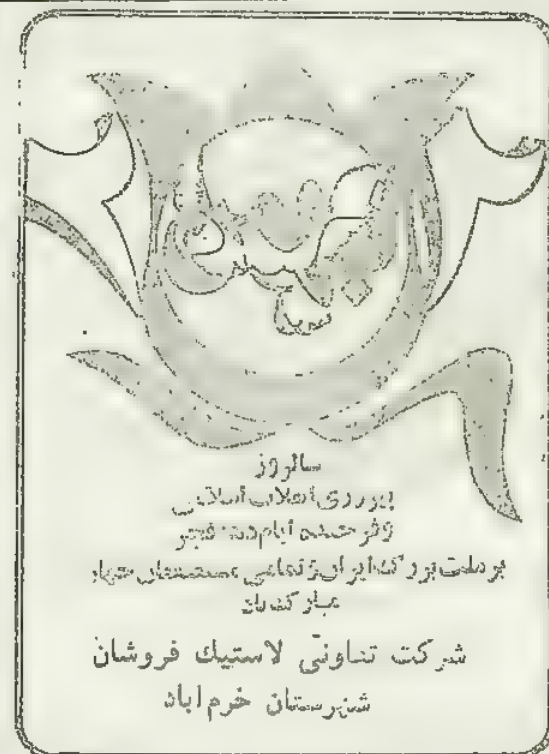 سالروز
پیروزی انقلاب اسلامی
و فرخنده ایام دهه فجر
بر ملت بزرگ ایران و تمامی مستضعفان جهان
مبارک باد
شرکت تعاونی لاستیک فروشان
شهرستان خرم اباد